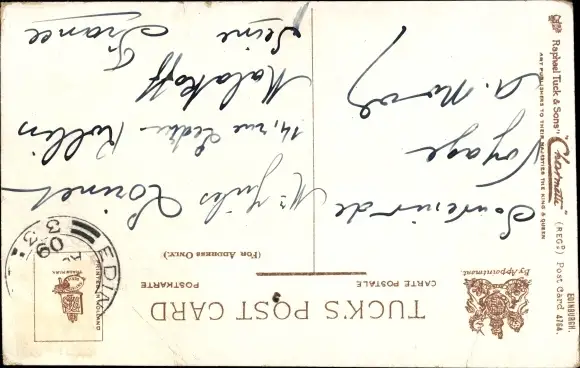 TUCK'S POST CARD
CARTE POSTALE
POSTKARTE
(FOR ADDRESS ONLY.)
By Appointment.
Souvenir de
Voyage
Mr Jules
14, rue Ledru Rollin
Malakoff
Seine
France
EDIN
09
Raphael Tuck & Sons' "Charmette" (REGD) Post Card 4764.
EDINBURGH.
ART PUBLISHERS TO THEIR MAJESTIES THE KING & QUEEN